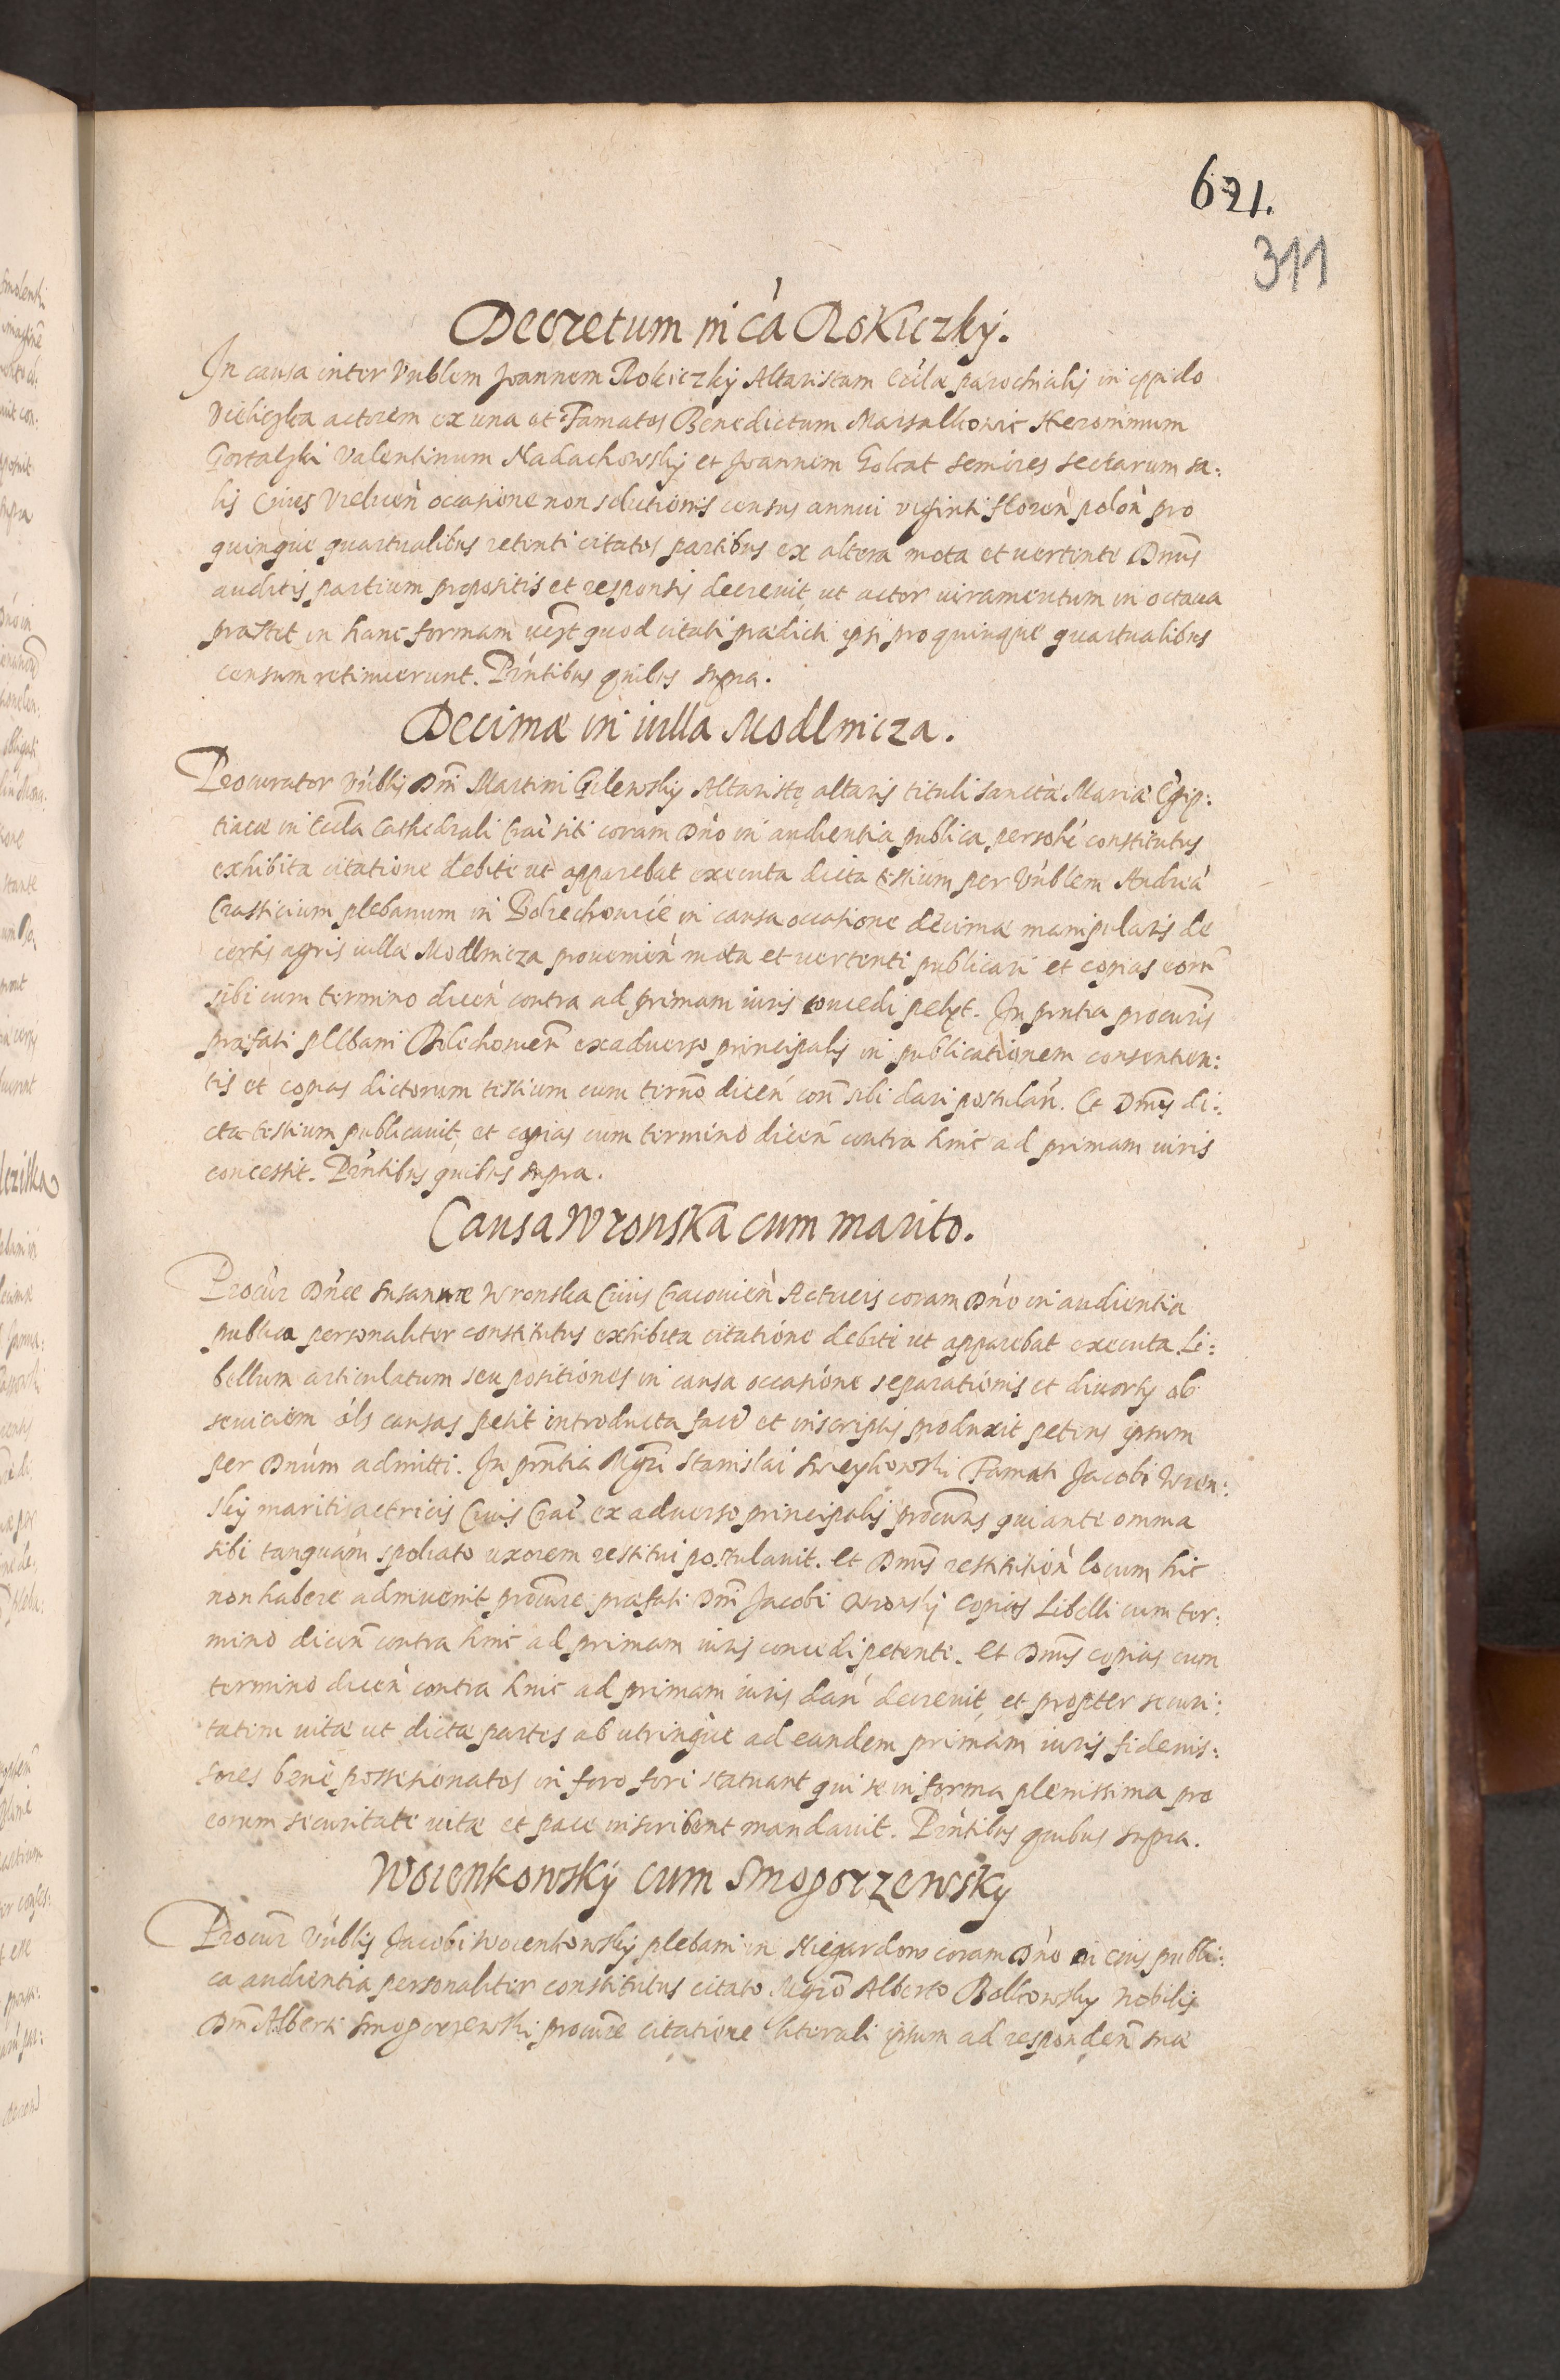 621.
311
Decretum in cà Rokiczky.
In causa inter Vnblem Joannem Rokiczky Altaristam Ecclæ parochialis in oppido
Vieliczka actorem ex una et Famatos Benedictum Marsalkowic Heronimum
Gortalski Valentinum Nadachowsky et Joannem Golcat semires sectarum sa:
lis Cives Vieliceǹ occasione non solutionis census annui viginti floreǹ poloǹ pro
quinque quartualibus retenti citatos partibus ex altera mota et vertente Dnus
auditis partium propositis et responsis decrevit, ut actor iuramentum in octava
præstet in hanc formam quod citati prædicti ipsi pro quinque quartualibus
censum retinuerunt. Pntibus quibus supra.
Decimæ in villa Modlnicza.
Procurator Vnblis Dni Martini Gilewsky Altaristę altaris tituli sanctæ Mariæ Egip:
tiacæ in Eccla Cathedrali Crac̃ siti coram Dno in audientia publica persone constitutus
exhibita citatione debite ut apparebat executa dicta testium per Vnblem Andreā
Crassicium plebanum in Bolechowice in causa occasione decimæ manipularis de
certis agris villæ Modlnicza proveniẽn mota et vertenti publicari et copias eorm̃
sibi cum termino diceǹ contra ad primam iuris concedi petyt. In pntia procuris
præfati plebani Bolechowieñ ex adverso principalis in publicationem consentien:
tis et copias dictorum testium cum termno diceń con̄ sibi dari postulań. Et Dnus di:
cta testium publicavit, et copias cum termino diceñ contra hinc ad primam iuris
concessit. Pntibus quibus supra.
Causa Wronska cum marito.
Procur Dnæ Susannæ Wronska Civis Cracovieǹ Actricis coram Dno in audientia
publica personaliter constitutus exhibita citatione debite ut apparebat executa Li:
bellum articulatum seu positiones in causa occasione separationis et divorty ob
seviciem als causas petit introducta facto et in scriptis produxit petens ipsum
per Dnum admitti. In pntia Mgri Stanislai Sweykowski Famati Jacobi Wron:
sky mariti actricis Civis Crac̃ ex adverso principalis procuris qui ante omnia
sibi tanquam spoliato uxorem restitui postulavit. Et Dnus restitutioǹ locum hic
non habere adinvenit procure præfati Dni Jacobi Wronsky Copias Libelli cum ter:
mino diceñ contra hinc ad primam iuris concedi petente. Et Dnus copias cum
termino diceǹ contra hinc ad primam iuris dari decrevit, et propter securi:
tatem vitæ ut dictæ partes ab utrinque ad eandem primam iuris fideius:
sores bene possesionatos in foro fori statuant qui se in forma plenissima pro
eorum securitate vitæ et pace inscribent mandavit. Pntibus quibus supra.
Woienkowsky cum Smogorzewsky
Procur Vnblis Jacobi Woienkowsky plebani in Niegardow coram Dno in eius publi:
ca audientia personaliter constitutus citato Mgro Alberto Bolkowsky Nobilis
Dni Alberti Smogorzewski procure citatione literali ipsum ad respondeñ suæ